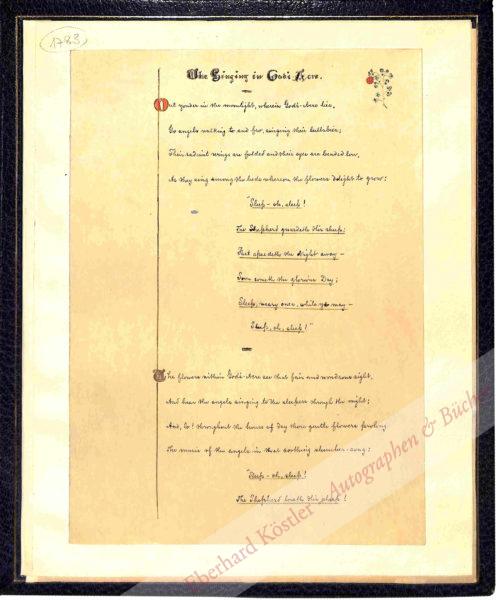 1783
The Singing in God's Acre.
Out yonder in the moonlight, wherein God's-Acre lies,
Go angels walking to and fro, singing their lullabies;
Their radiant wings are folded and their eyes are bended low,
As they sing among the beds whereon the flowers delight to grow:
"Sleep – oh, sleep!
The Shepherd guardeth His sheep;
Fast speedeth the Night away –
Soon cometh the glorious Day;
Sleep, weary ones, while ye may –
Sleep, oh, sleep!"
The flowers within God's-Acre see that fair and wondrous sight,
And hear the angels singing to the sleepers through the night;
And, lo! throughout the hours of day those gentle flowers prolong
The music of the angels in that soothing slumber-song:
"Sleep – oh, sleep!
The Shepherd loveth His sheep!
Eberhard Köstler - Autographen & Bücher